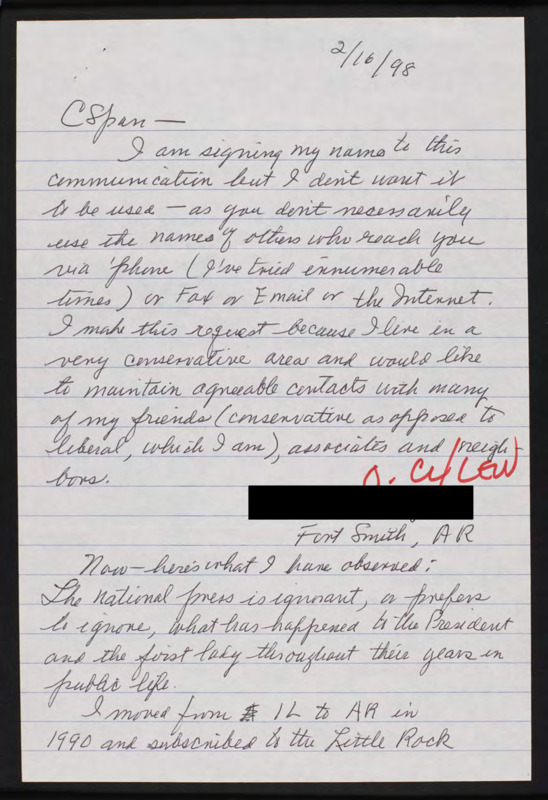 2/16/98
CSpan —
I am signing my name to this
communication but I don't want it
to be used — as you don't necessarily
use the names of others who reach you
via 'phone (I've tried innumerable
times) or Fax or Email or the Internet.
I make this request because I live in a
very conservative area and would like
to maintain agreeable contacts with many
of my friends (conservative as opposed to
liberal, which I am), associates and neigh-
bors.
Fort Smith, AR
Now — here's what I have observed:
The national press is ignorant, or prefers
to ignore, what has happened to the President
and the first lady throughout their years in
public life.
I moved from IL to AR in
1990 and subscribed to the Little Rock